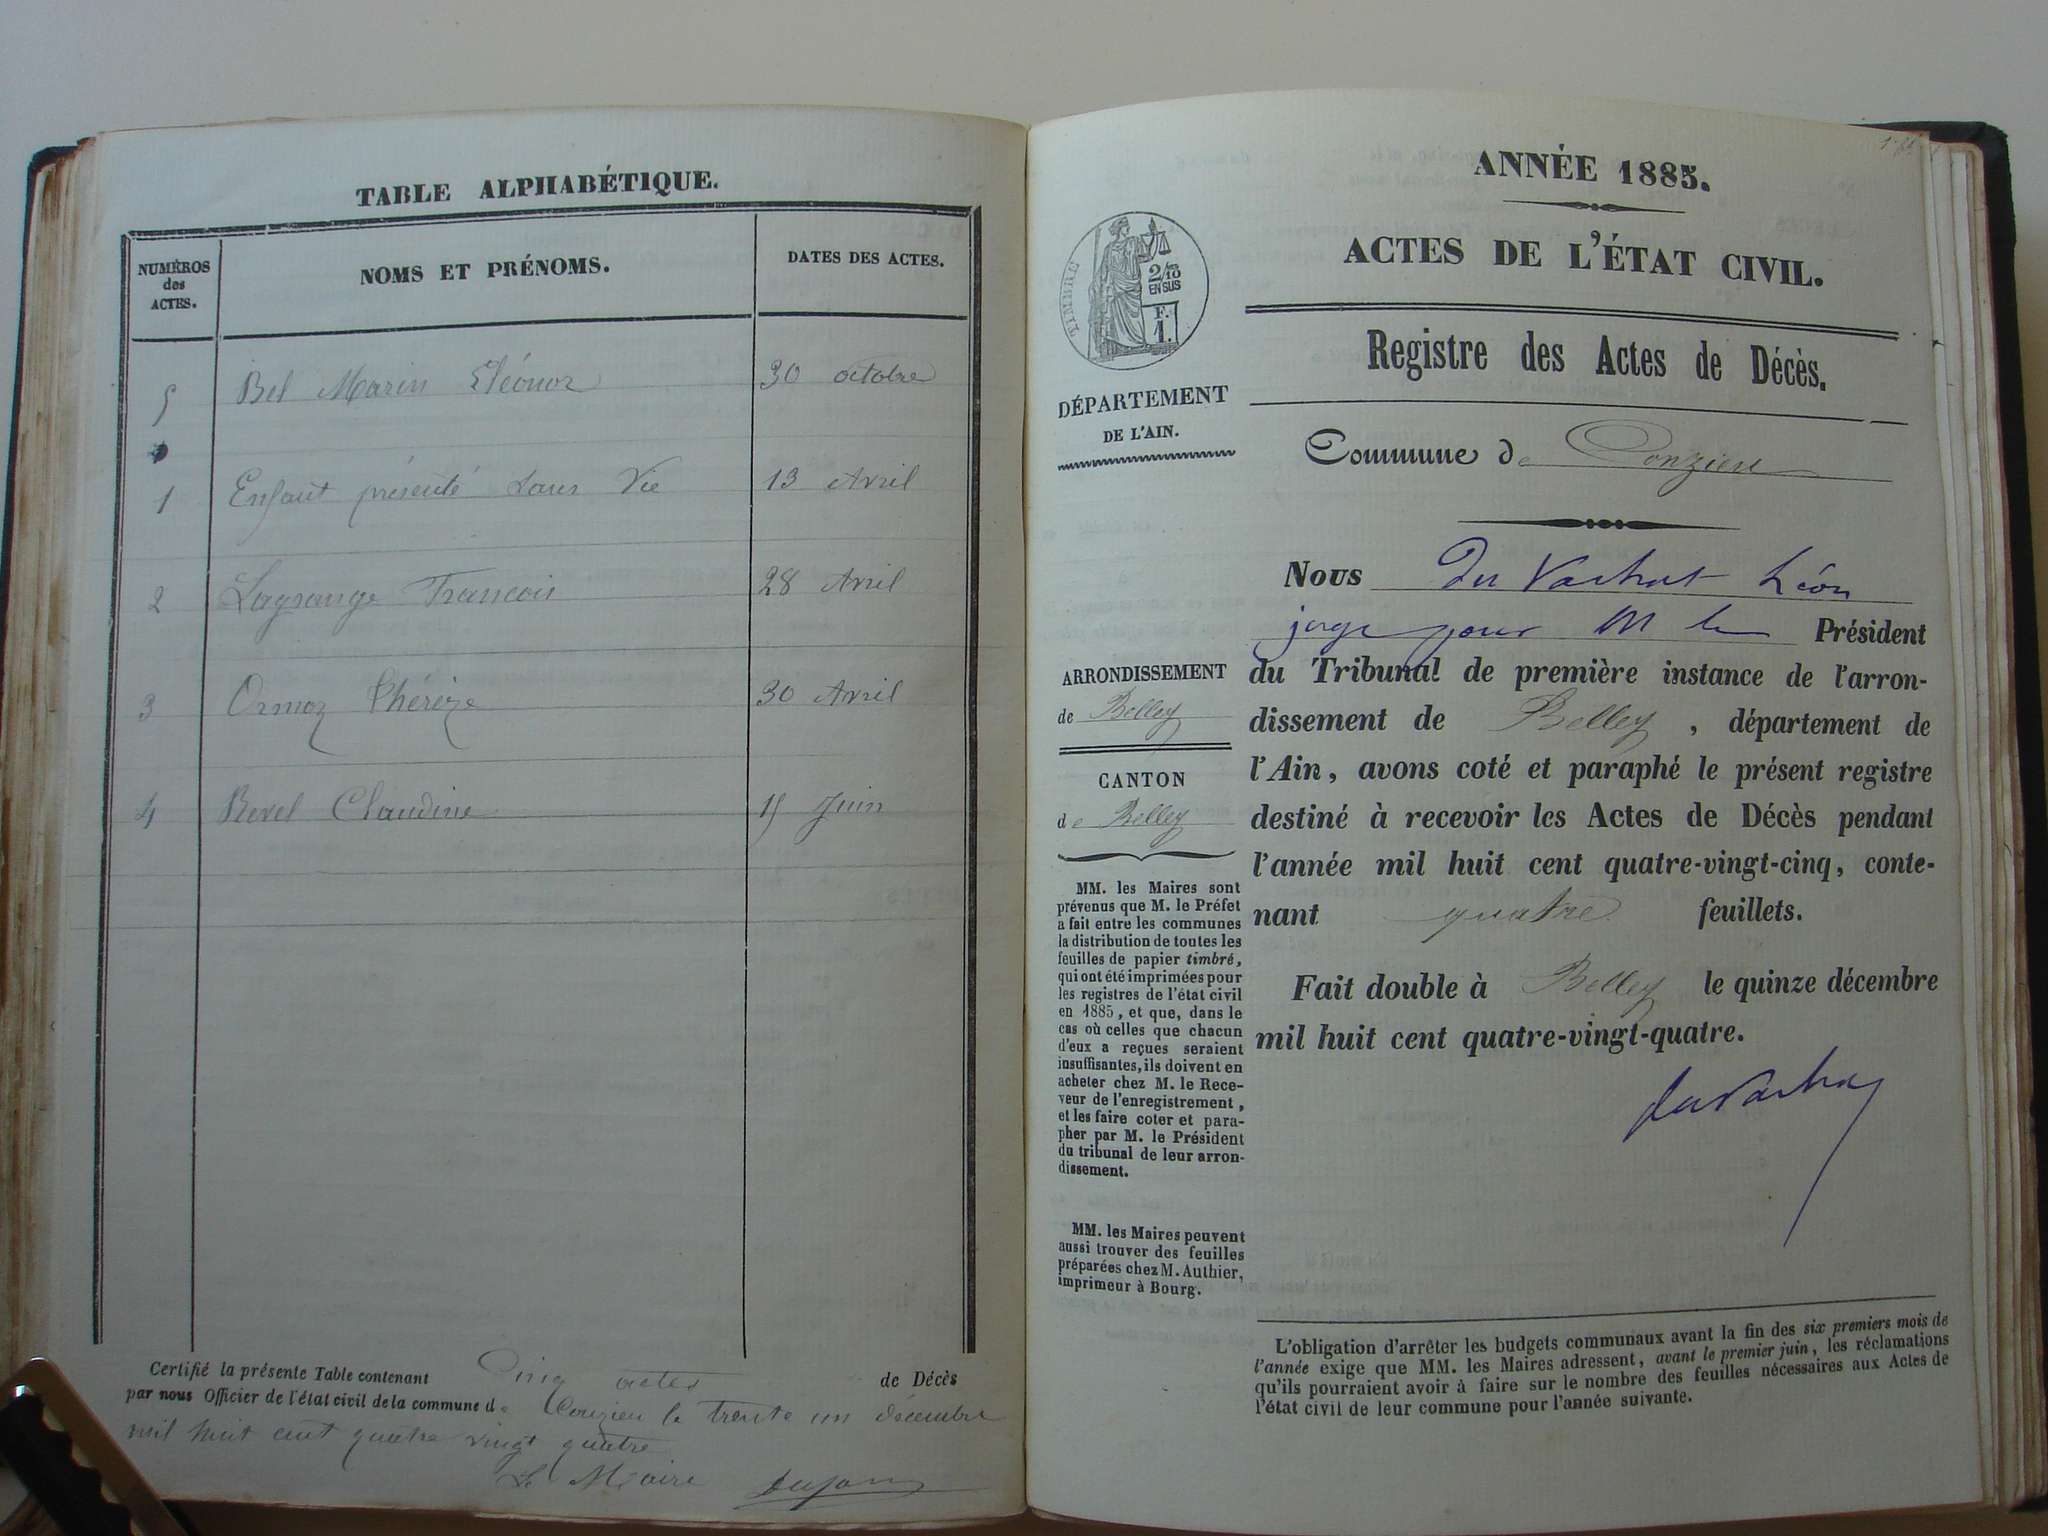 TABLE ALPHABÉTIQUE.
NUMÉROS
des
ACTES.
NOMS ET PRÉNOMS.
DATES DES ACTES.
5 Bel Marin Eléonor 30 octobre
1 Enfant présenté sans Vie 13 Avril
2 Lagrange Francois 28 Avril
3 Ormoz Thérèze 30 Avril
4 Revel Claudine 15 Juin
Certifié la présente Table contenant Cinq actes de Décès
par nous Officier de l'état civil de la commune de Conzieu le trente un décembre
mil huit cent quatre vingt quatre
Le Maire
ANNÉE 1885.
ACTES DE L'ÉTAT CIVIL.
Registre des Actes de Décès.
TIMBRE
2/10
EN SUS
F.
1.
DÉPARTEMENT
DE L'AIN.
ARRONDISSEMENT
de Belley
CANTON
de Belley
MM. les Maires sont
prévenus que M. le Préfet
a fait entre les communes
la distribution de toutes les
feuilles de papier timbré,
qui ont été imprimées pour
les registres de l'état civil
en 1885, et que, dans le
cas où celles que chacun
d'eux a reçues seraient
insuffisantes, ils doivent en
acheter chez M. le Rece-
veur de l'enregistrement,
et les faire coter et para-
pher par M. le Président
du tribunal de leur arron-
dissement.
MM. les Maires peuvent
aussi trouver des feuilles
préparées chez M. Authier,
imprimeur à Bourg.
Commune de Conzieu
Nous Du Vachat Léon
juge pour M le Président
du Tribunal de première instance de l'arron-
dissement de Belley, département de
l'Ain, avons coté et paraphé le présent registre
destiné à recevoir les Actes de Décès pendant
l'année mil huit cent quatre-vingt-cinq, conte-
nant quatre feuillets.
Fait double à Belley le quinze décembre
mil huit cent quatre-vingt-quatre.
du Vachat
L'obligation d'arrêter les budgets communaux avant la fin des six premiers mois de
l'année exige que MM. les Maires adressent, avant le premier juin, les réclamations
qu'ils pourraient avoir à faire sur le nombre des feuilles nécessaires aux Actes de
l'état civil de leur commune pour l'année suivante.